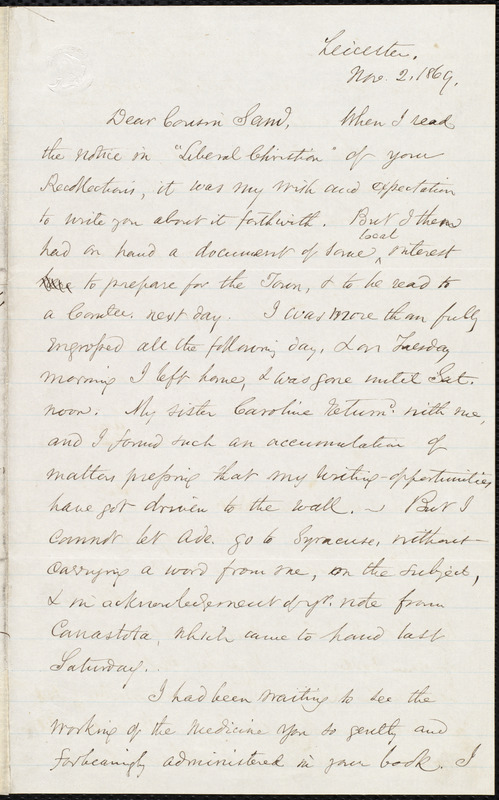 Leicester,
Nov. 2, 1869.
Dear Cousin Saml, When I read
the notice in "Liberal Christian" of your
Recollections, it was my wish and expectation
to write you about it forthwith. But I then
had on hand a document of some local interest
to prepare for the Town, & to be read to
a Comtee. next day. I was more than fully
engrossed all the following day, & on Tuesday
morning I left home, & was gone until Sat.
noon. My sister Caroline return'd with me,
and I found such an accumulation of
matters pressing that my writing-opportunities
have got driven to the wall. – But I
cannot let Ade. go to Syracuse, without
carrying a word from me, on the subject,
& in acknowledgement of yr. note from
Canastota, which came to hand last
Saturday.
I had been waiting to see the
working of the medicine you so gently and
forbearingly administered in your book. I